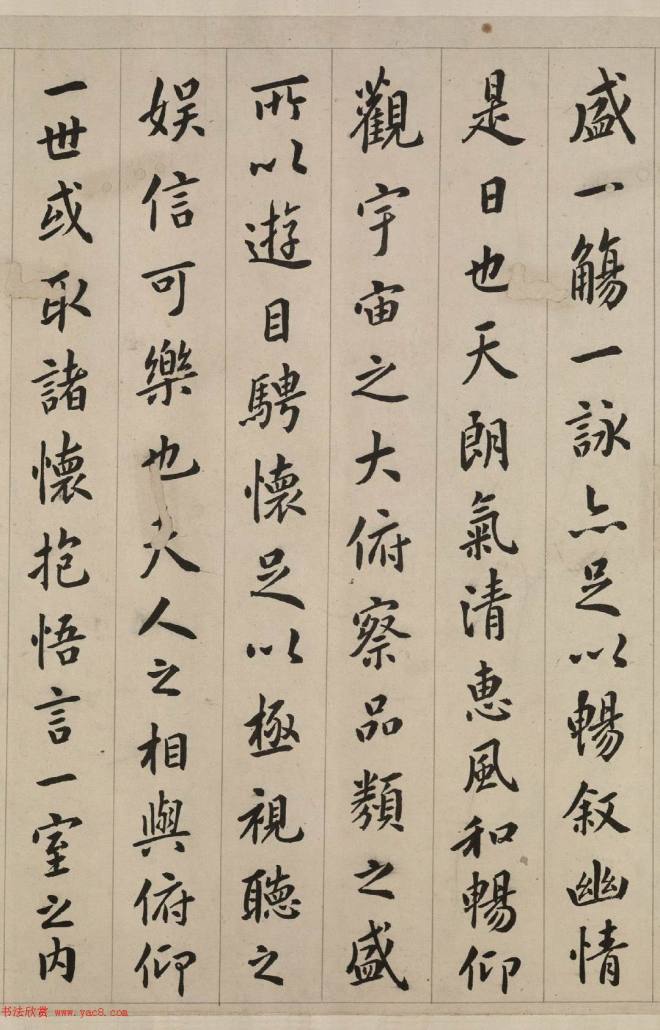 盛一觴一詠亦足以暢叙幽情
是日也天朗氣清惠風和暢仰
觀宇宙之大俯察品類之盛
所以遊目騁懷足以極視聽之
娱信可樂也夫人之相與俯仰
一世或取諸懷抱悟言一室之内
书法欣赏 www.yac8.com